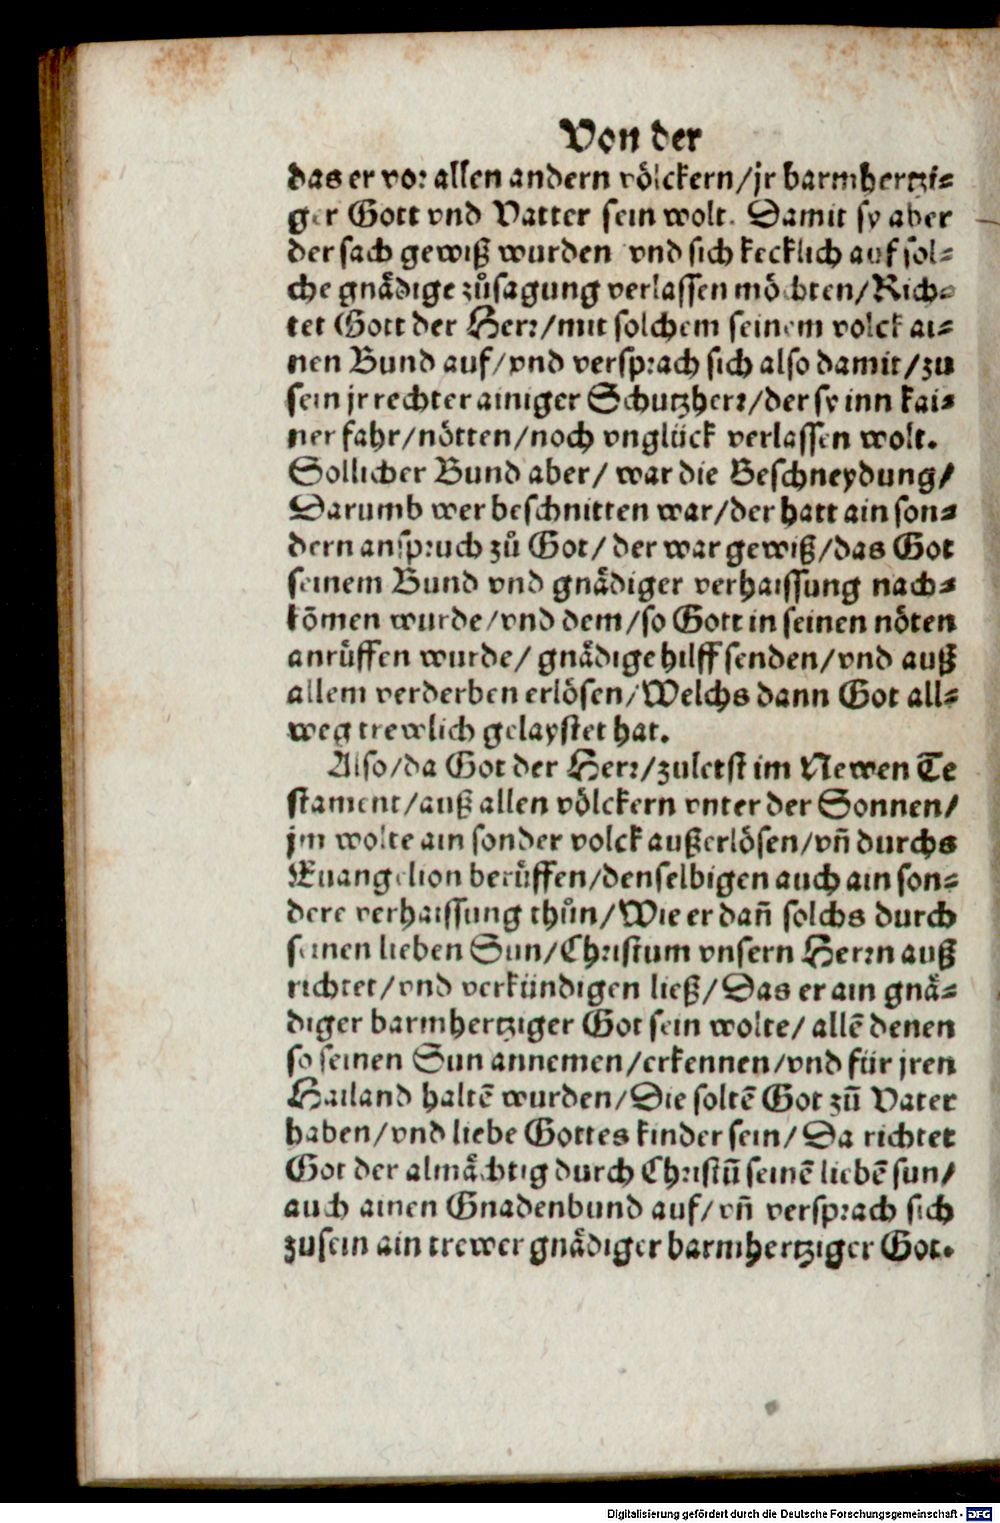 Von der
das er vor allen andern völckern/jr barmhertzi⸗
ger Gott vnd Vatter sein wolt. Damit sy aber
der sach gewiß wurden vnd sich kecklich auf sol⸗
che gnädige zůsagung verlassen möchten/Rich⸗
tet Gott der Herr/mit solchem seinem volck ai⸗
nen Bund auf/vnd versprach sich also damit/zu
sein jr rechter ainiger Schutzherr/der sy inn kai⸗
ner fahr/nötten/noch vnglück verlassen wolt.
Sollicher Bund aber/ war die Beschneydung/
Darumb wer beschnitten war/der hatt ain son⸗
dern anspruch zů Got/ der war gewiß/das Got
seinem Bund vnd gnädiger verhaissung nach⸗
kōmen wurde/vnd dem/so Gott in seinen nöten
anrüffen wurde/ gnädige hilff senden/vnd auß
allem verderben erlösen/Welchs dann Got all⸗
weg trewlich gelaystet hat.
Also/da Got der Herr/zuletst im Newen Te
stament/auß allen völckern vnter der Sonnen/
jm wolte ain sonder volck außerlösen/vñ durchs
Euangelion berüffen/denselbigen auch ain son⸗
dere verhaissung thůn/Wie er dañ solchs durch
seinen lieben Sun/Christum vnsern Herrn auß
richtet/vnd verkündigen ließ/Das er ain gnä⸗
diger barmhertziger Got sein wolte/ allē denen
so seinen Sun annemen/erkennen/vnd für jren
Hailand haltē wurden/Die soltē Got zū Vater
haben/vnd liebe Gottes kinder sein/ Da richtet
Got der almächtig durch Christū seinē liebē sun/
auch ainen Gnadenbund auf/vñ versprach sich
zusein ain trewer gnädiger barmhertziger Got.
Digitalisierung gefördert durch die Deutsche Forschungsgemeinschaft - DFG